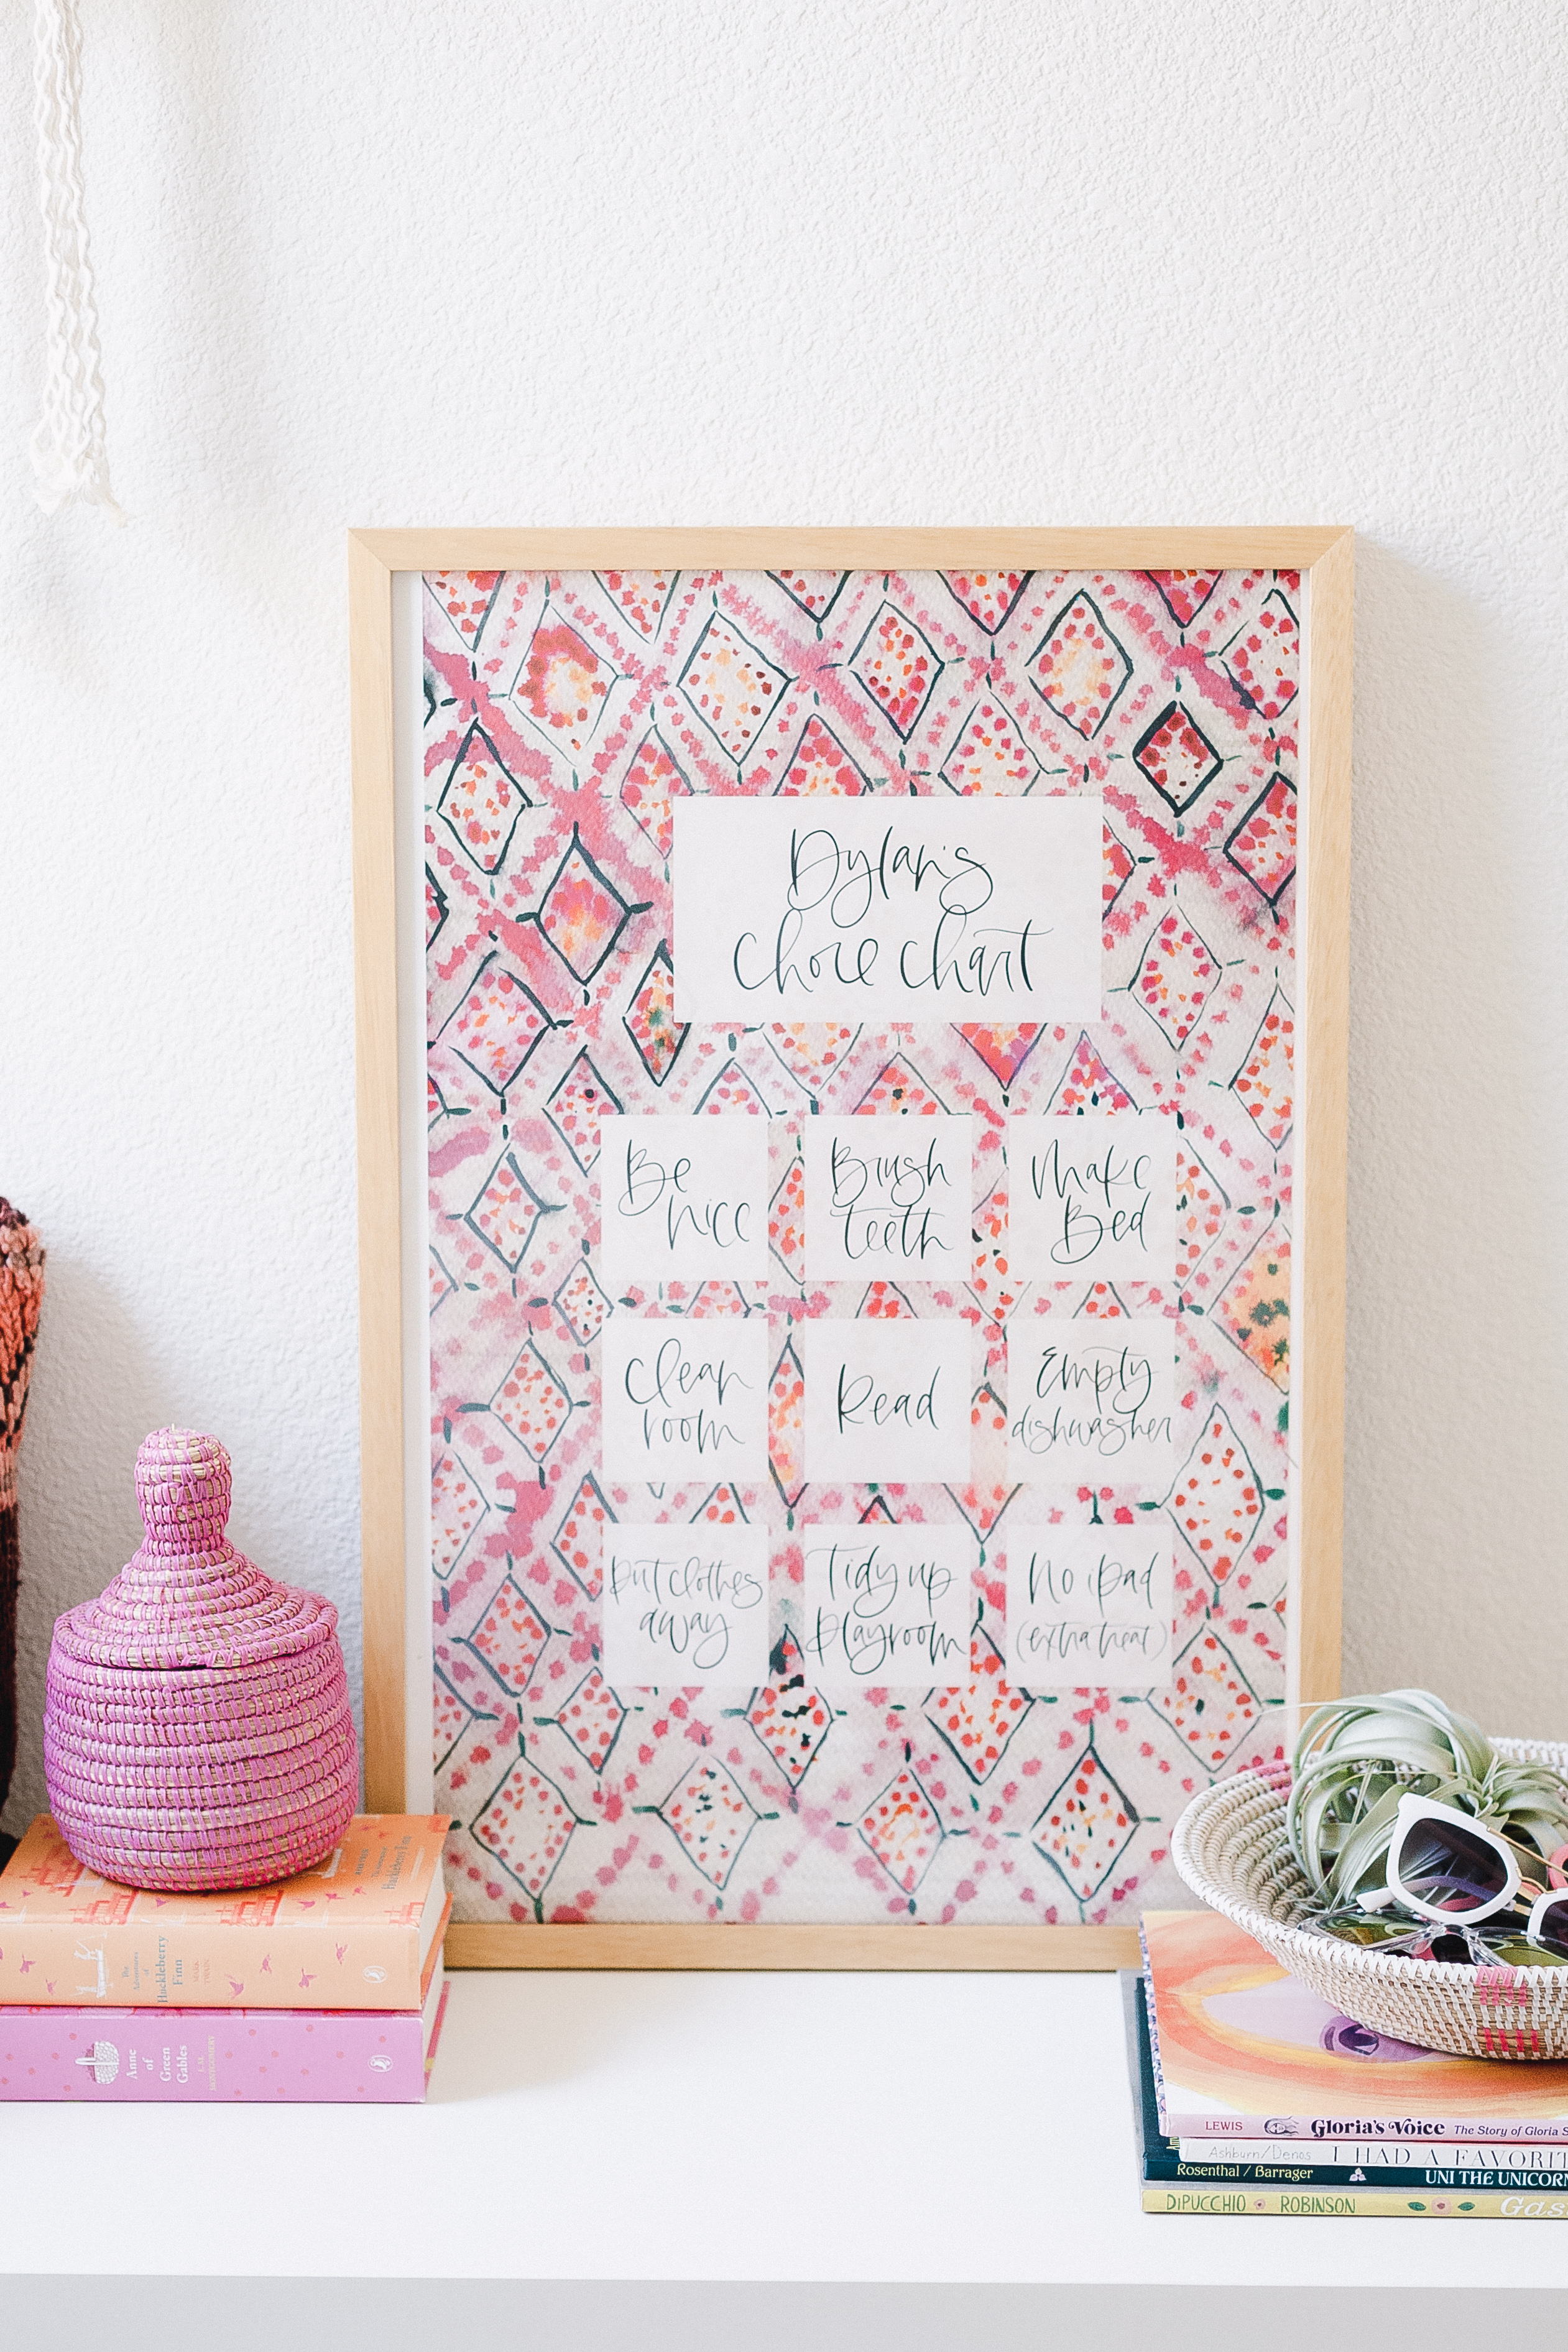 Dylan's
chore chart
Be
nice
Brush
teeth
Make
Bed
Clean
room
Read
Empty
dishwasher
Put clothes
away
Tidy up
Playroom
No iPad
(extra treat)
The
Adventures
of
Huckleberry
Finn
MARK
TWAIN
Anne
of
Green
Gables
L. M.
MONTGOMERY
LEWIS Gloria's Voice The Story of Gloria S
Ashburn/Denos I HAD A FAVORIT
Rosenthal / Barrager UNI THE UNICORN
DIPUCCHIO ROBINSON Gas